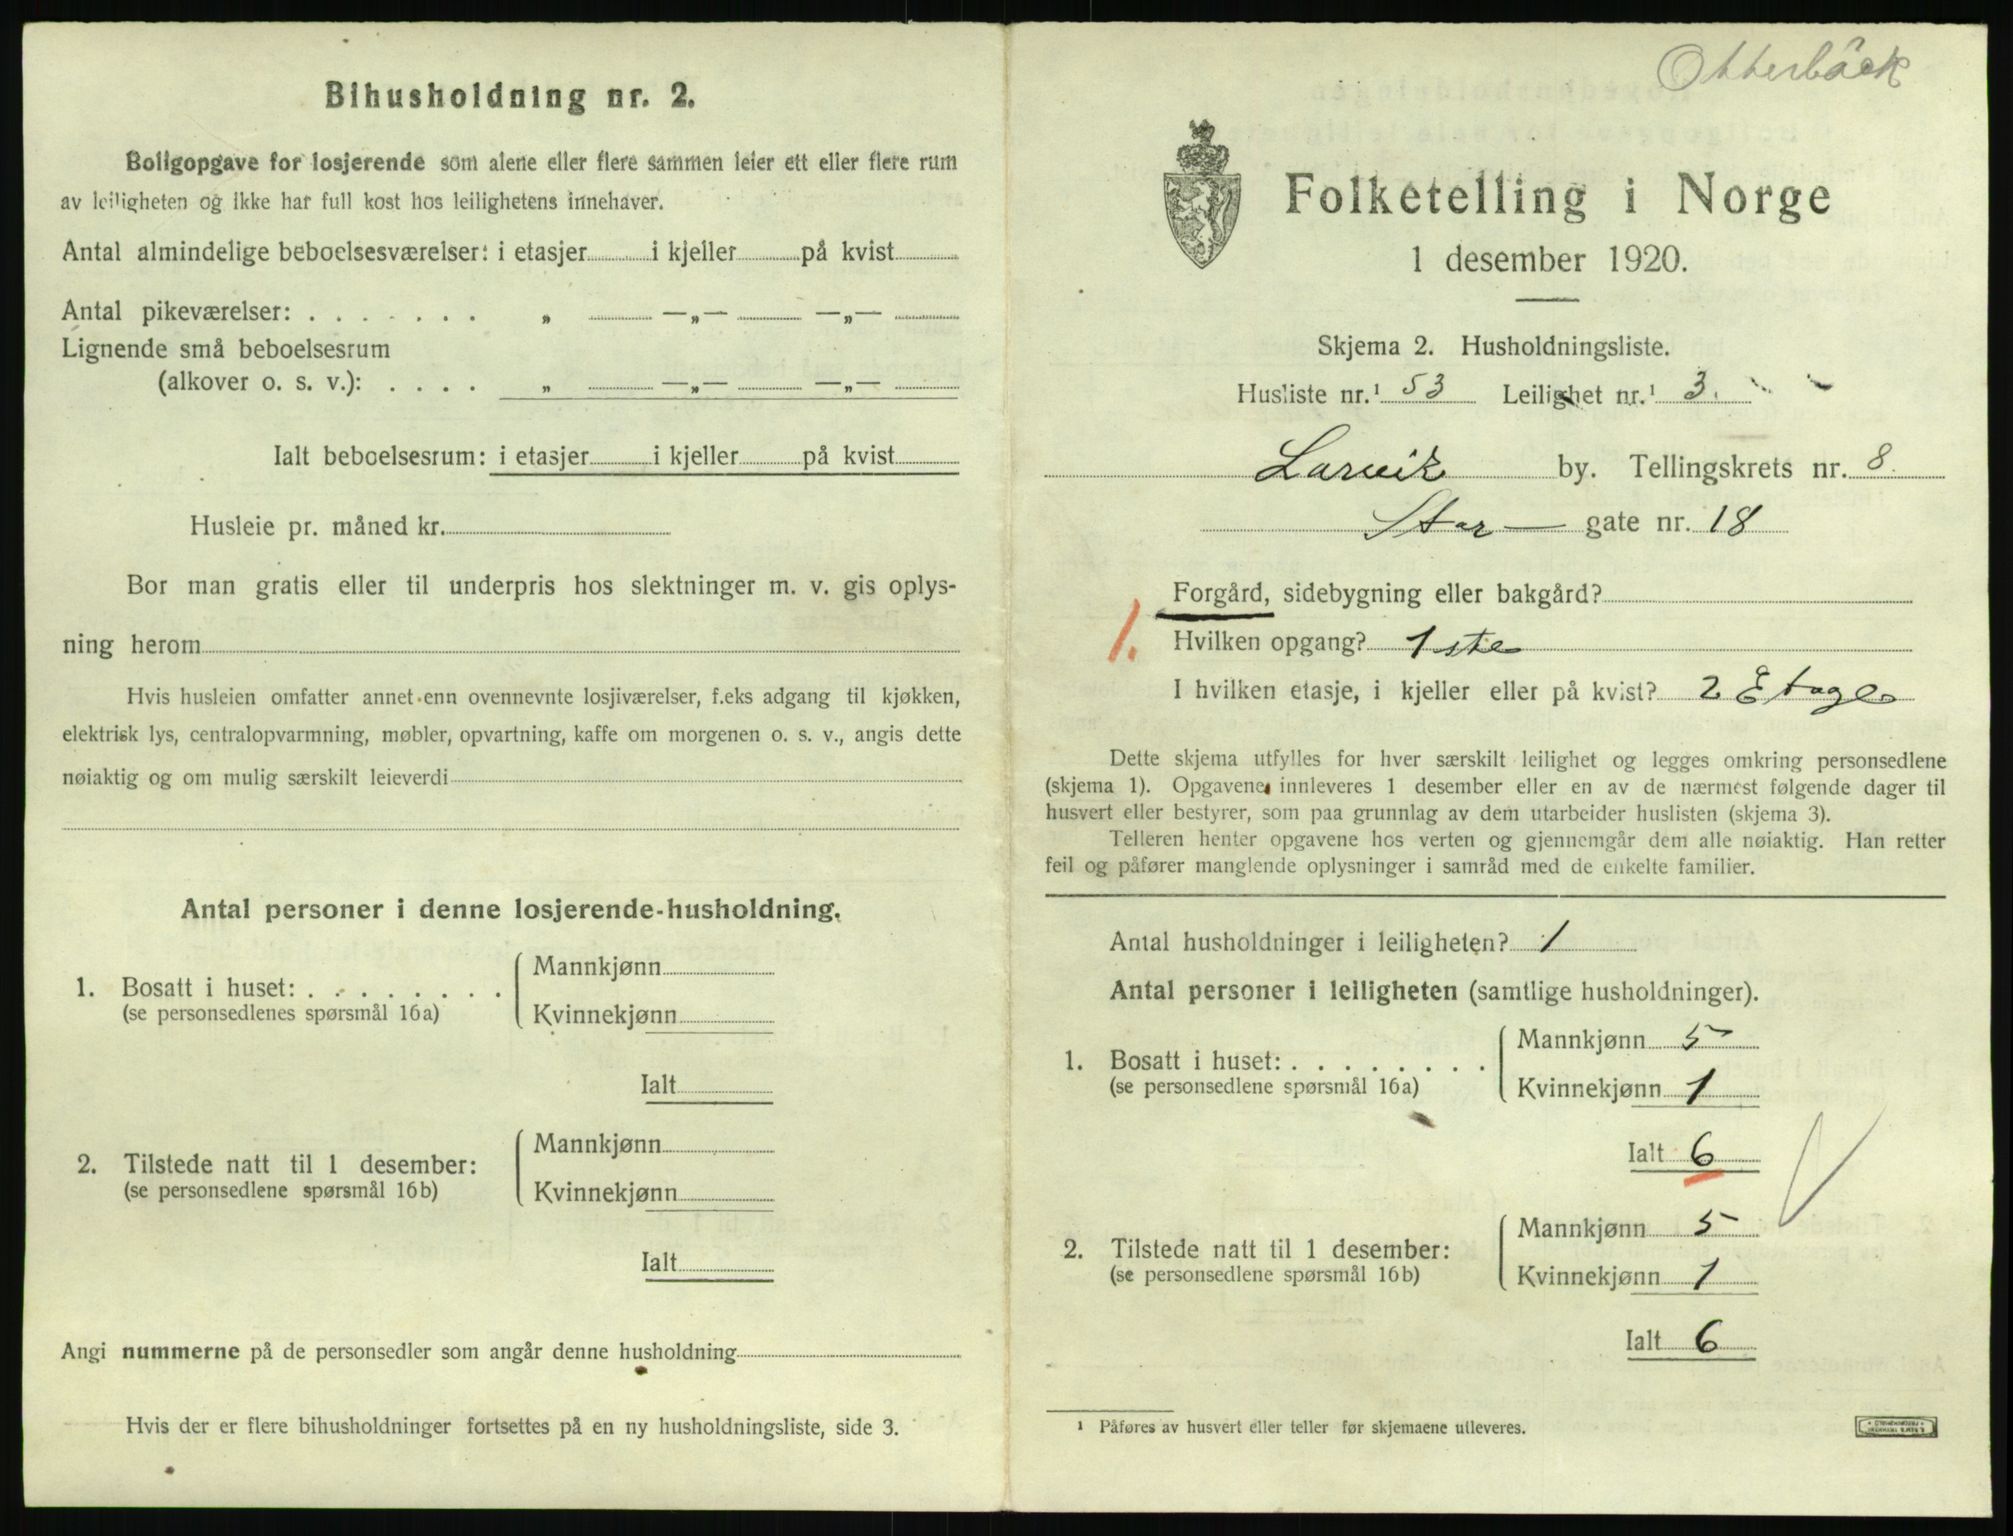 Bihusholdning nr. 2.
Boligopgave for losjerende som alene eller flere sammen leier ett eller flere rum
av leiligheten og ikke har full kost hos leilighetens innehaver.
Antal almindelige beboelsesværelser: i etasjer i kjeller på kvist
Antal pikeværelser: . . . . . . . „ —„— —„—
Lignende små beboelsesrum
(alkover o. s. v.): . . . . „ —„— —„—
Ialt beboelsesrum: i etasjer i kjeller på kvist
Husleie pr. måned kr.
Bor man gratis eller til underpris hos slektninger m. v. gis oplys-
ning herom
Hvis husleien omfatter annet enn ovennevnte losjiværelser, f.eks adgang til kjøkken,
elektrisk lys, centralopvarmning, møbler, opvartning, kaffe om morgenen o. s. v., angis dette
nøiaktig og om mulig særskilt leieverdi
Antal personer i denne losjerende-husholdning.
1. Bosatt i huset: . . . . . . . .
(se personsedlenes spørsmål 16a)
Mannkjønn
Kvinnekjønn
Ialt
2. Tilstede natt til 1 desember:
(se personsedlene spørsmål 16b)
Mannkjønn
Kvinnekjønn
Ialt
Angi nummerne på de personsedler som angår denne husholdning
Hvis der er flere bihusholdninger fortsettes på en ny husholdningsliste, side 3.
Otterbäck
Folketelling i Norge
1 desember 1920.
Skjema 2. Husholdningsliste.
Husliste nr.¹ 53 Leilighet nr.¹ 3.
Larvik by. Tellingskrets nr. 8.
Stor— gate nr. 18
Forgård, sidebygning eller bakgård?
1. Hvilken opgang? 1ste
I hvilken etasje, i kjeller eller på kvist? 2 Etage
Dette skjema utfylles for hver særskilt leilighet og legges omkring personsedlene
(skjema 1). Opgavene innleveres 1 desember eller en av de nærmest følgende dager til
husvert eller bestyrer, som paa grunnlag av dem utarbeider huslisten (skjema 3).
Telleren henter opgavene hos verten og gjennemgår dem alle nøiaktig. Han retter
feil og påfører manglende oplysninger i samråd med de enkelte familier.
Antal husholdninger i leiligheten? 1
Antal personer i leiligheten (samtlige husholdninger).
1. Bosatt i huset: . . . . . . . .
(se personsedlene spørsmål 16a)
Mannkjønn 5
Kvinnekjønn 1
Ialt 6
2. Tilstede natt til 1 desember:
(se personsedlene spørsmål 16b)
Mannkjønn 5
Kvinnekjønn 1
Ialt 6
¹ Påføres av husvert eller teller før skjemaene utleveres.